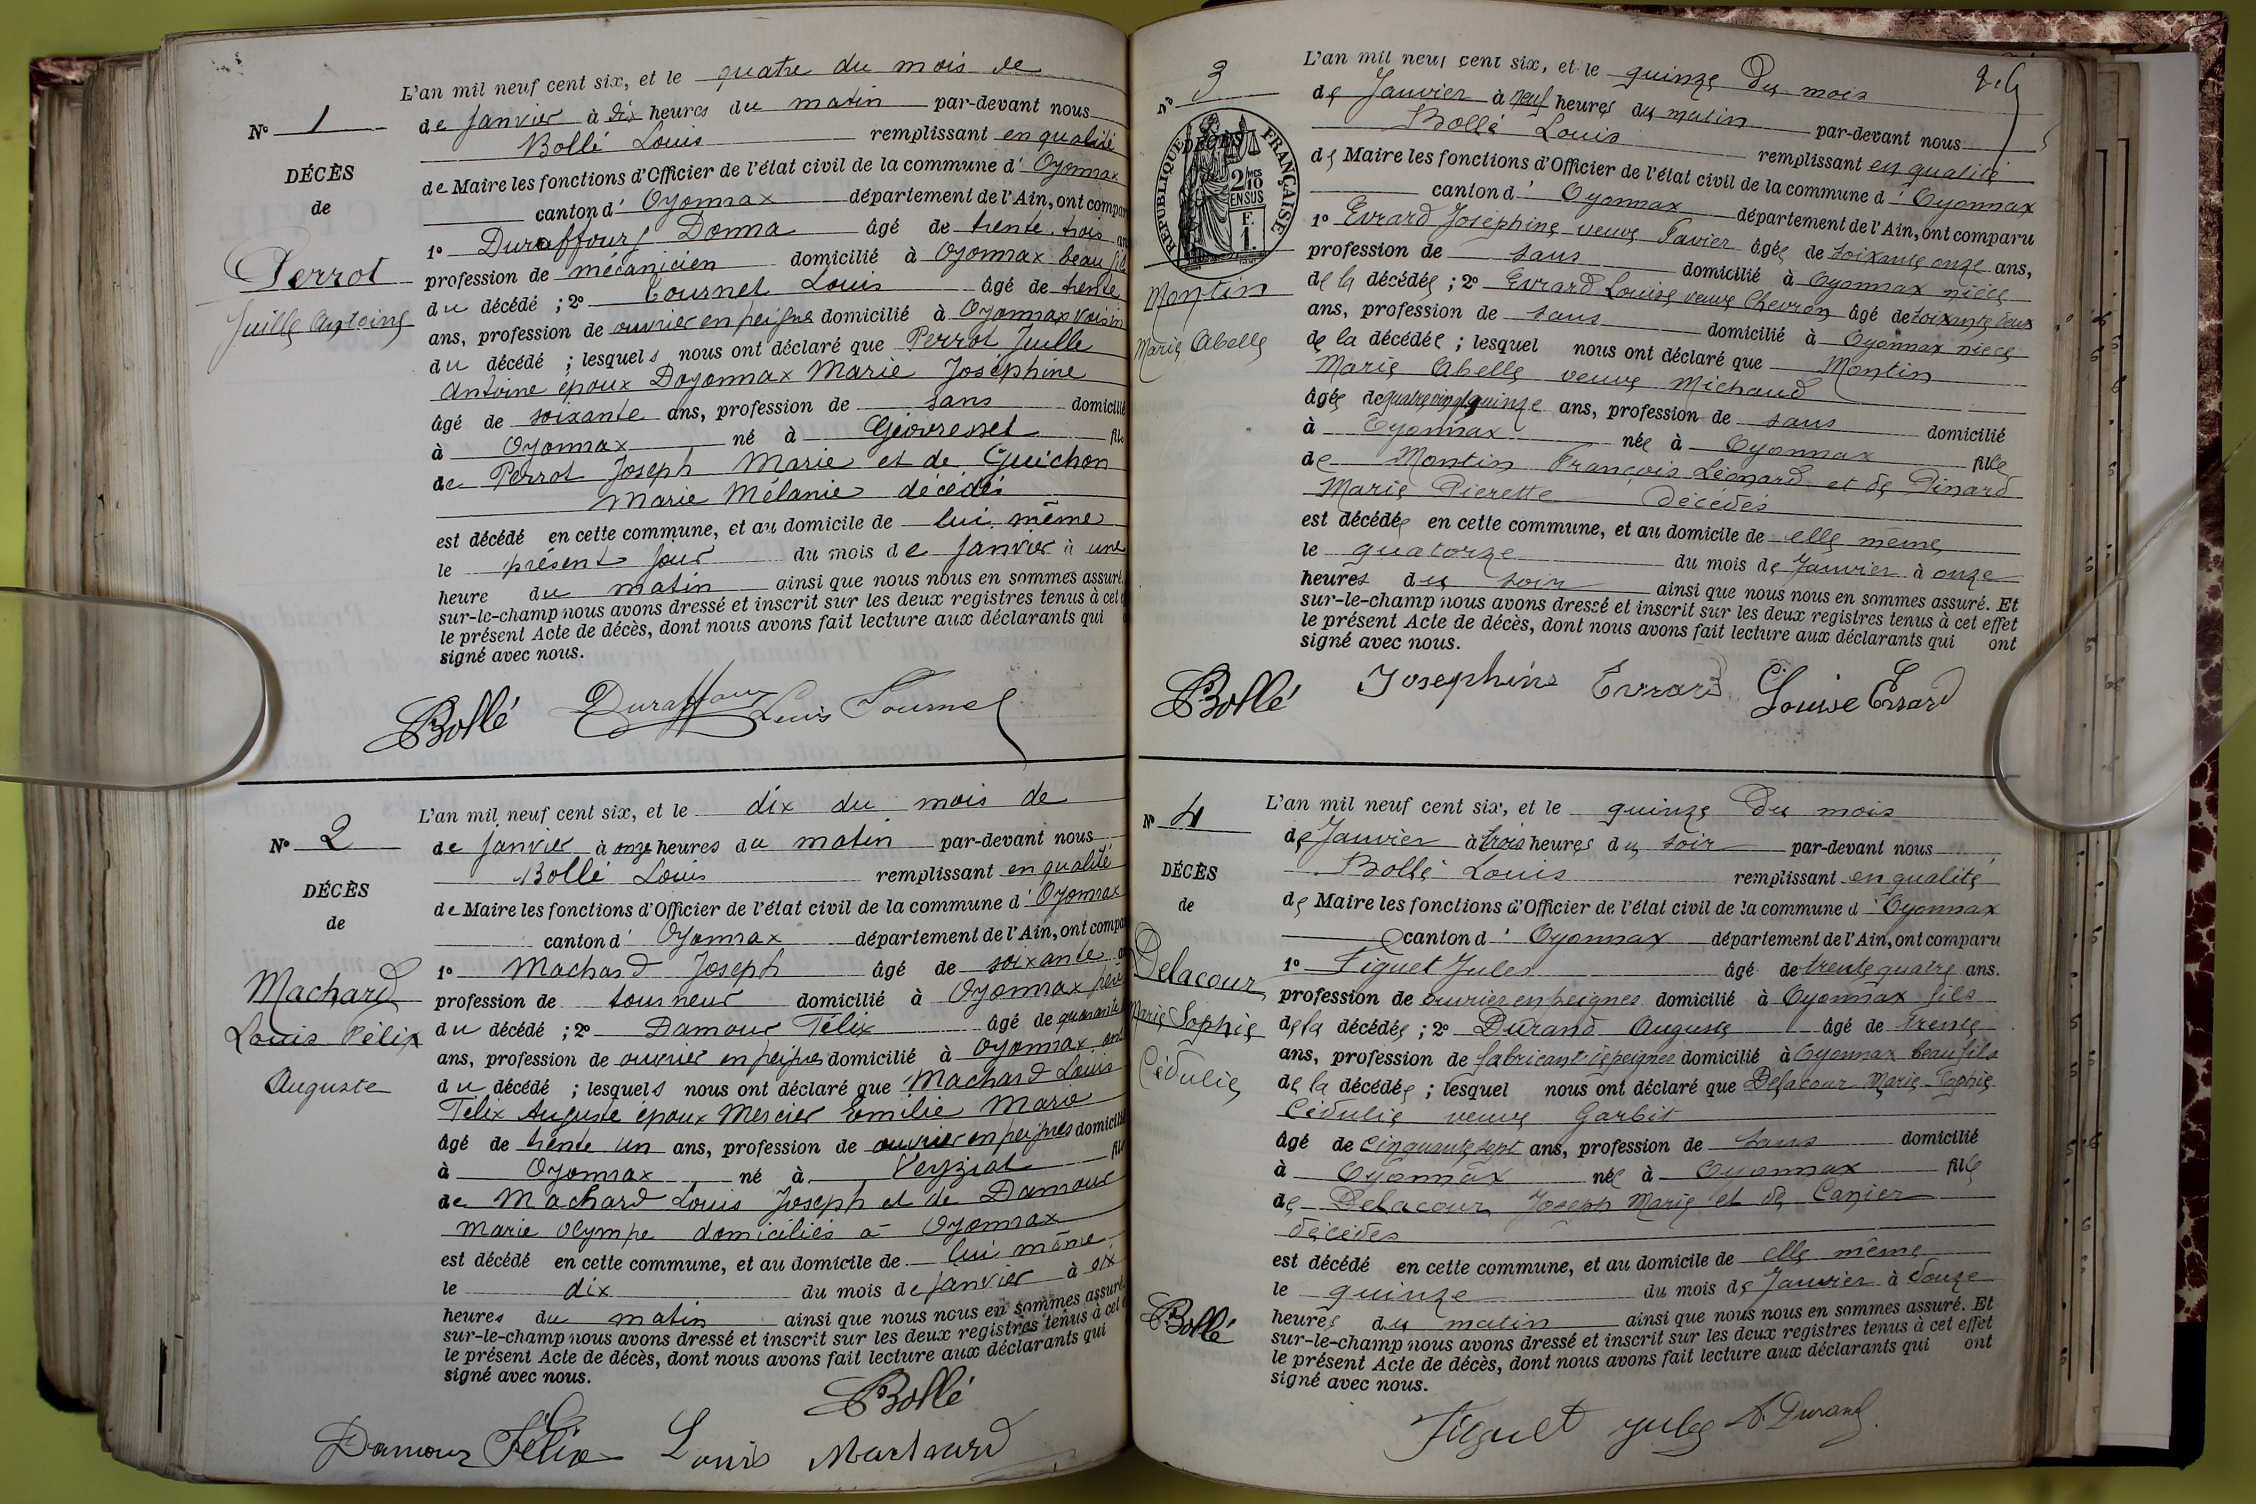 N° 1
DÉCÈS
de
Perrot
Juille Antoine
L'an mil neuf cent six, et le quatre du mois de
de Janvier à dix heures du matin par-devant nous
Bollé Louis remplissant en qualité
de Maire les fonctions d'Officier de l'état civil de la commune d' Oyonnax
canton d' Oyonnax département de l'Ain, ont compar
1° Duraffourg Donna âgé de trente trois an
profession de mécanicien domicilié à Oyonnax beau fils
du décédé ; 2° Tournet Louis âgé de trente
ans, profession de ouvrier en peignes domicilié à Oyonnax voisin
du décédé ; lesquels nous ont déclaré que Perrot Juille
Antoine époux Doyonnax Marie Joséphine
âgé de soixante ans, profession de sans domicilié
à Oyonnax né à Géovresset fils
de Perrot Joseph Marie et de Guichon
Marie Mélanie décédés
est décédé en cette commune, et au domicile de lui même
le présent jour du mois de Janvier à une
heure du matin ainsi que nous nous en sommes assuré.
sur-le-champ nous avons dressé et inscrit sur les deux registres tenus à cet e
le présent Acte de décès, dont nous avons fait lecture aux déclarants qui
signé avec nous.
Bollé Duraffour Louis Tournet
N° 2
DÉCÈS
de
Machard
Louis Félix
Auguste
L'an mil neuf cent six, et le dix du mois de
de Janvier à onze heures du matin par-devant nous
Bollé Louis remplissant en qualité
de Maire les fonctions d'Officier de l'état civil de la commune d' Oyonnax
canton d' Oyonnax département de l'Ain, ont compa
1° Machard Joseph âgé de soixante
profession de tourneur domicilié à Oyonnax père
du décédé ; 2° Damour Félix âgé de quarante
ans, profession de ouvrier en peignes domicilié à Oyonnax
du décédé ; lesquels nous ont déclaré que Machard Louis
Félix Auguste époux Mercier Emilie Marie
âgé de trente un ans, profession de ouvrier en peignes domicilié
à Oyonnax né à Veyziat fils
de Machard Louis Joseph et de Damour
Marie Olympe domiciliés à Oyonnax
est décédé en cette commune, et au domicile de lui même
le dix du mois de Janvier à six
heures du matin ainsi que nous nous en sommes assuré.
sur-le-champ nous avons dressé et inscrit sur les deux registres tenus à cet e
le présent Acte de décès, dont nous avons fait lecture aux déclarants qui
signé avec nous.
Bollé
Damour Félix Louis Machard
N° 3
DÉCÈS
RÉPUBLIQUE FRANÇAISE
2/10
EN SUS
F.
1.
Montin
Marie Abelle
L'an mil neuf cent six, et le quinze du mois
de Janvier à neuf heures du matin par-devant nous
Bollé Louis remplissant en qualité
de Maire les fonctions d'Officier de l'état civil de la commune d' Oyonnax
canton d' Oyonnax département de l'Ain, ont comparu
1° Evrard Joséphine veuve Favier âgée de soixante onze ans,
profession de sans domicilié à Oyonnax nièce
de la décédée ; 2° Evrard Louise veuve Chevron âgé de soixante deux
ans, profession de sans domicilié à Oyonnax nièce
de la décédée ; lesquel nous ont déclaré que Montin
Marie Abelle veuve Michaud
âgée de quatre vingt quinze ans, profession de sans domicilié
à Oyonnax née à Oyonnax fille
de Montin François Léonard et de Pinard
Marie Pierette décédés
est décédée en cette commune, et au domicile de elle même
le quatorze du mois de Janvier à onze
heures du soir ainsi que nous nous en sommes assuré. Et
sur-le-champ nous avons dressé et inscrit sur les deux registres tenus à cet effet
le présent Acte de décès, dont nous avons fait lecture aux déclarants qui ont
signé avec nous.
Bollé Joséphine Evrard Louise Evrard
N° 4
DÉCÈS
de
Delacour
Marie Sophie
Cédulie
L'an mil neuf cent six, et le quinze du mois
de Janvier à trois heures du soir par-devant nous
Bollé Louis remplissant en qualité
de Maire les fonctions d'Officier de l'état civil de la commune d' Oyonnax
canton d' Oyonnax département de l'Ain, ont comparu
1° Figuet Jules âgé de trente quatre ans.
profession de ouvrier en peignes domicilié à Oyonnax fils
de la décédée ; 2° Durand Auguste âgé de trente
ans, profession de fabricant de peignes domicilié à Oyonnax beau fils
de la décédée ; lesquel nous ont déclaré que Delacour Marie Sophie
Cédulie veuve Garbit
âgé de cinquante sept ans, profession de sans domicilié
à Oyonnax née à Oyonnax fille
de Delacour Joseph Marie et de Canier
décédés
est décédée en cette commune, et au domicile de elle même
le quinze du mois de Janvier à douze
heures du matin ainsi que nous nous en sommes assuré. Et
sur-le-champ nous avons dressé et inscrit sur les deux registres tenus à cet effet
le présent Acte de décès, dont nous avons fait lecture aux déclarants qui ont
signé avec nous.
Bollé
Figuet Jules A. Durand